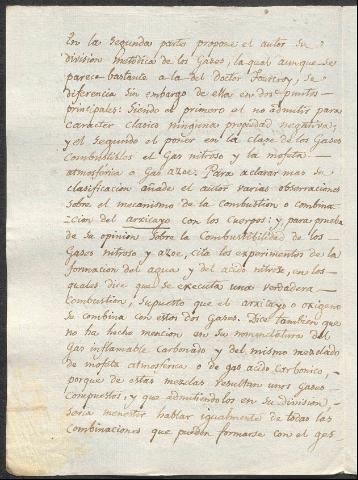 En la segunda parte propone el autor su
division metódica de los Gases, la qual aunque se
parece bastante a la del doctor Fourcroy, se
diferencia sin embargo de ella en dos puntos
principales: Siendo el primero el no admitir para
caracter clasico ninguna propiedad negativa;
y el segundo el poner en la clase de los Gases
Combustibles el Gas nitroso y la mofeta
atmosférica o Gas azoe: Para aclarar mas su
clasificacion añade el autor varias observaciones
sobre el mecanismo de la combustion o combina-
cion del arxicayo con los cuerpos; y, para prueba
de su opinion sobre la Combustibilidad de los
Gases nitroso y azoe, cita los experimentos de la
formacion del agua y del acido nitrico, en los
quales dice que se executa una verdadera
Combustion, supuesto que el arxicayo u oxigeno
se combina con estos dos Gases. Dice tambien que
no ha hecho mencion en su nomenclatura del
Gas inflamable Carbonado y del mismo mezclado
de mofeta atmosferica o de gas acido Carbonico,
porque de estas mezclas resultan unos Gases
Compuestos, y que admitiendolos en su division,
seria menester hablar igualmente de todas las
Combinaciones que pueden formarse con el gas